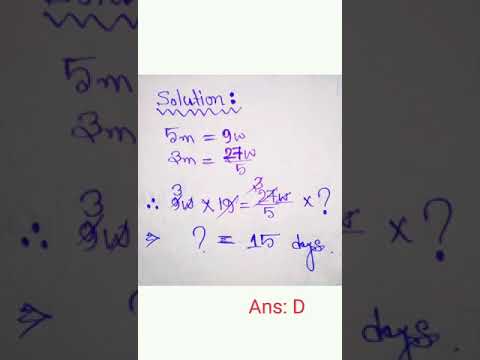 Solution:
5m = 9w
3m = 27w/5
3 3
∴ 9w × = 27w/5 × ?
⇒ ? = 15 days.
Ans: D